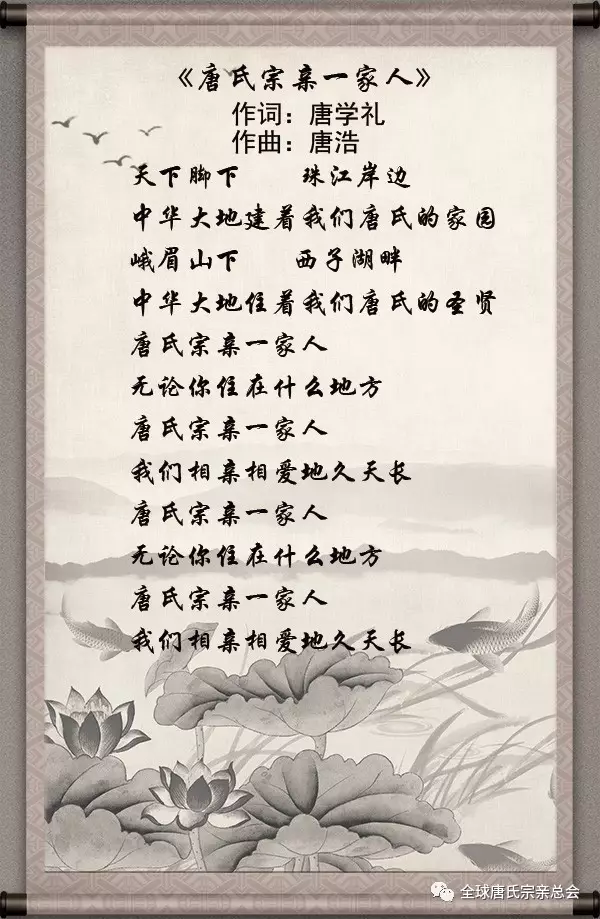 《唐氏宗亲一家人》
作词：唐学礼
作曲：唐浩
天下脚下 珠江岸边
中华大地建着我们唐氏的家园
峨眉山下 西子湖畔
中华大地住着我们唐氏的圣贤
唐氏宗亲一家人
无论你住在什么地方
唐氏宗亲一家人
我们相亲相爱地久天长
唐氏宗亲一家人
无论你住在什么地方
唐氏宗亲一家人
我们相亲相爱地久天长
全球唐氏宗亲总会